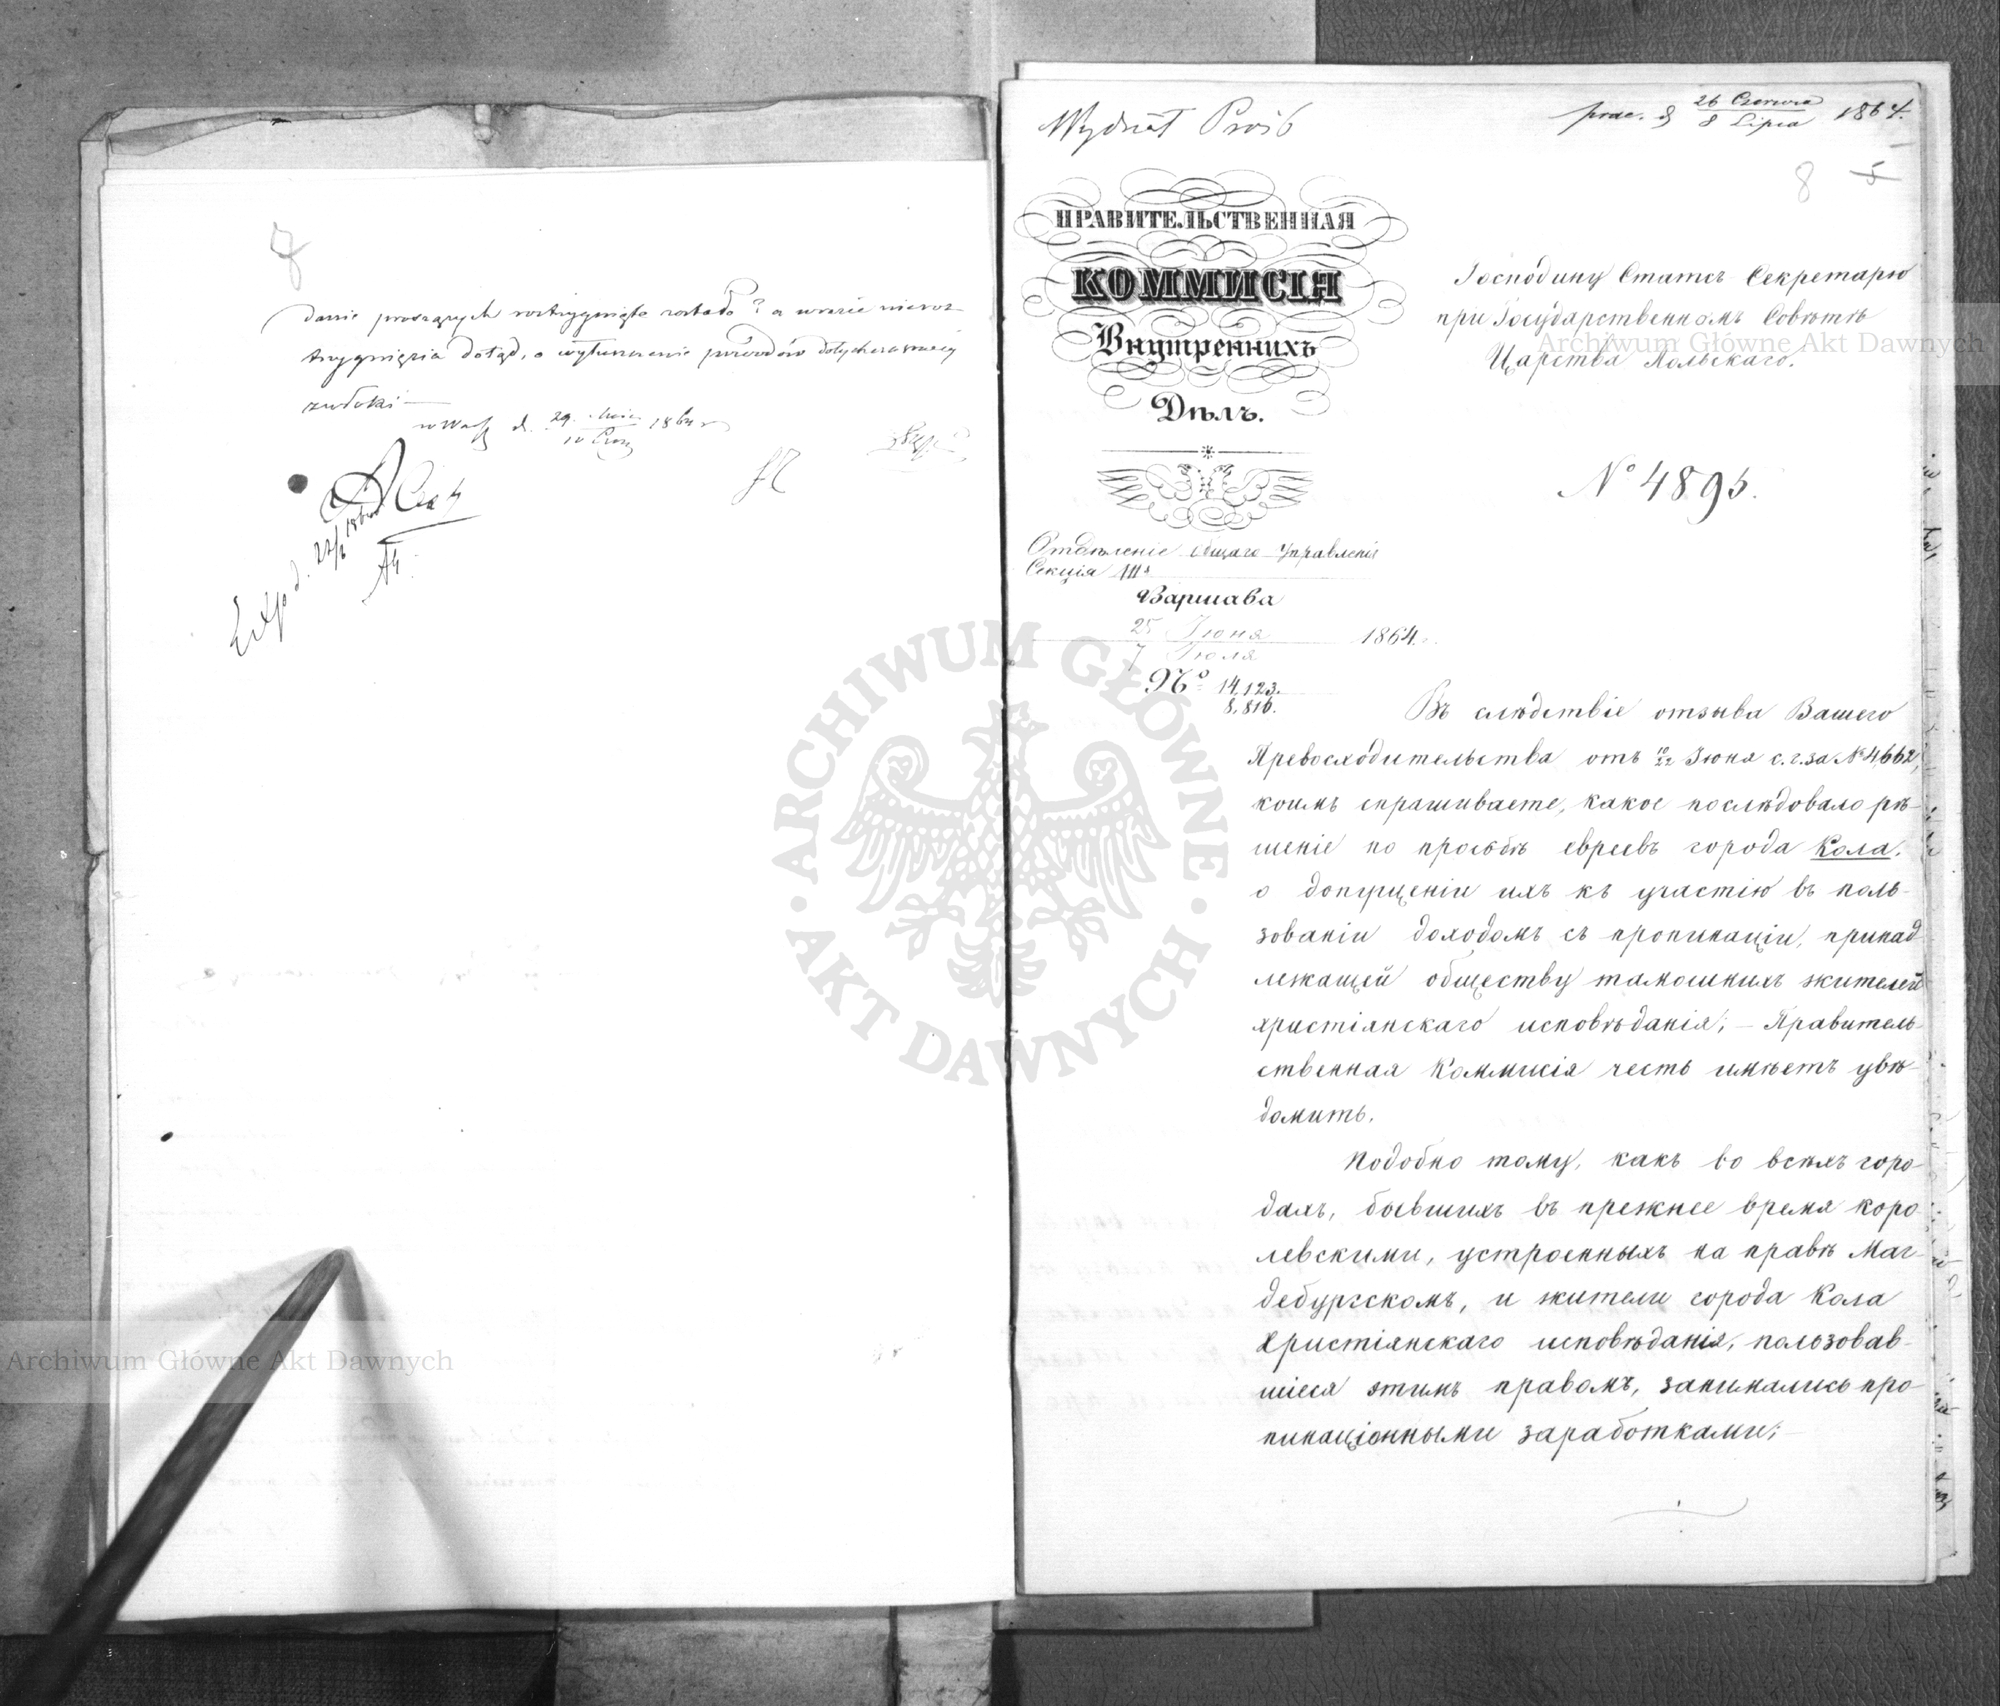 danie proszących rozstrzygnięte zostało? a w razie nieroz-
trzygnięcia dotąd, o wytłumaczenie powodów dotychczasowej
zwłoki —
w Warsz d. 29 Maja / 10 Czer 1864 r
Exp d. 22/6 1864
Wydział Próśb
prae. d 26 Czerwca / 8 Lipca 1864.
8 5
ПРАВИТЕЛЬСТВЕННАЯ
КОММИСІЯ
Внутреннихъ
Дѣлъ.
Отдѣленіе Общаго Управленія
Секція III
Варшава
25 Іюня / 7 Іюля 1864.
№ 14,123. / 8,816.
Господину Статсъ Секретарю
при Государственномъ Совѣтѣ
Царства Польскаго.
№ 4895.
Въ слѣдствіе отзыва Вашего
Превосходительства отъ 10/22 Іюня с. г. за № 4662,
коимъ спрашиваете, какое послѣдовало рѣ-
шеніе по просьбѣ евреевъ города Кола,
о допущеніи ихъ къ участію въ поль-
зованіи доходомъ съ пропинаціи, принад-
лежащей обществу тамошнихъ жителей
христіянскаго исповѣданія; — Правитель-
ственная Коммисія честь имѣетъ увѣ-
домить.
Подобно тому, какъ во всѣхъ горо-
дахъ, бывшихъ въ прежнее время коро-
левскими, устроенныхъ на правѣ Маг-
дебургскомъ, и жители города Кола
Христіянскаго исповѣданія, пользовав-
шіеся этимъ правомъ, занимались про-
пинаціонными заработками;
ARCHIWUM GŁÓWNE AKT DAWNYCH
Archiwum Główne Akt Dawnych
Archiwum Główne Akt Dawnych